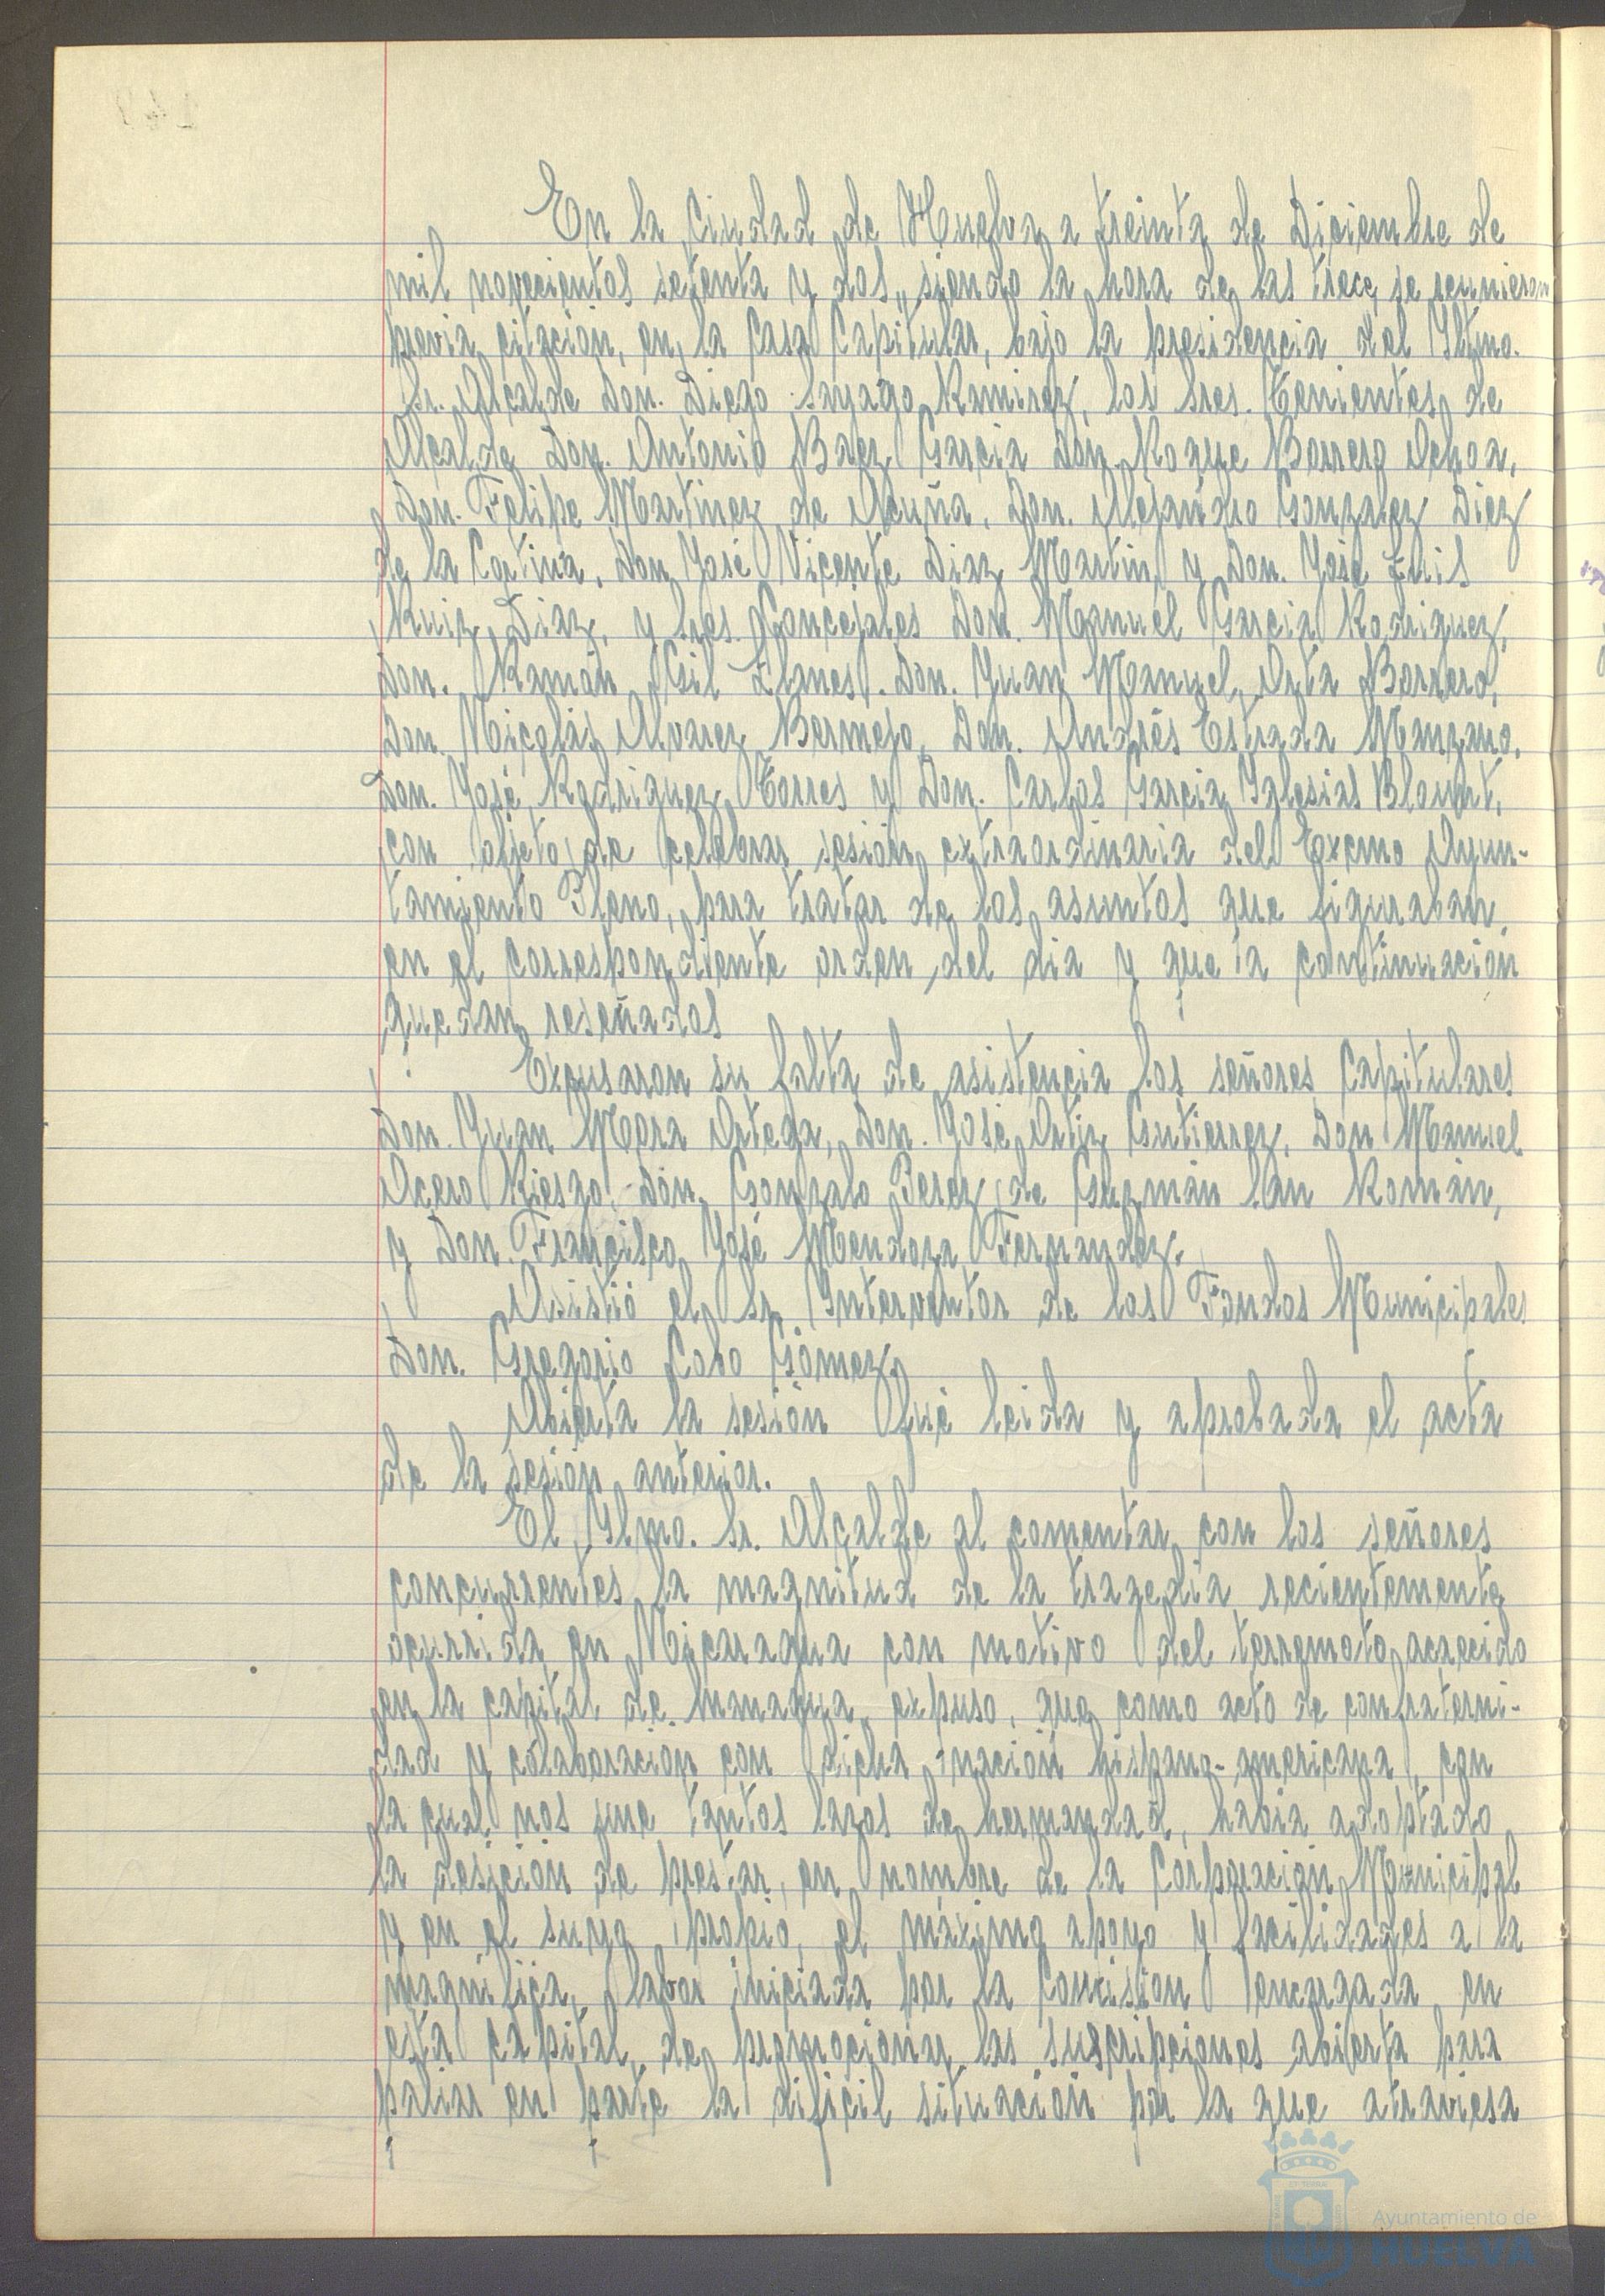 En la Ciudad de Huelva a treinta de Diciembre de
mil novecientos setenta y dos, siendo la hora de las trece, se reunieron
previa citación, en la Casa Capitular, bajo la presidencia del Iltmo.
Sr. Alcalde Don. Diego Sayago Ramirez, los Sres. Tenientes de
Alcalde Don. Antonio Baez Garcia Don. Roque Borrero Ochoa,
Don. Felipe Martinez de Acuña, Don. Alejandro Gonzalez Diez
de la Cortina, Don José Vicente Diaz Martin y Don. José Luis
Ruiz Diaz, y Sres. Concejales Don. Manuel Garcia Rodriguez,
Don. Ramón Gil Llanes. Don. Juan Manuel Orta Borrero,
Don. Nicolás Alvarez Bermejo, Don. Andrés Estrada Manzano,
Don. José Rodriguez Torres y Don. Carlos Garcia Iglesias Blount,
con objeto de celebrar sesión extraordinaria del Excmo Ayun-
tamiento Pleno, para tratar de los asuntos que figuraban
en el correspondiente orden del dia y que a continuación
quedan reseñados
Excusaron su falta de asistencia los señores Capitulares
Don. Juan Mora Ortega, Don. José Ortiz Gutierrez, Don Manuel
Acero Riesgo, Don. Gonzalo Perez de Guzmán San Román,
y Don. Francisco José Mendoza Fernandez.
Asistió el Sr. Interventor de los Fondos Municipales
Don. Gregorio Cobo Gómez.
Abierta la sesión fué leida y aprobada el acta
de la sesión anterior.
El Ilmo. Sr. Alcalde al comentar con los señores
concurrentes la magnitud de la tragedia recientemente
ocurrida en Nicaragua con motivo del terremoto acaecido
en la capital de Managua, expuso, que como acto de confraterni-
dad y colaboración con dicha nación hispano-americana, con
la cual nos une tantos lazos de hermandad, habia adoptado
la desición de prestar, en nombre de la Corporación Municipal
y en el suyo propio, el máximo apoyo y facilidades a la
magnifica labor iniciada por la Comisión encargada en
esta capital de promocionar las suscripciones abierta para
paliar en parte la dificil situación por la que atraviesa
Ayuntamiento de
HUELVA